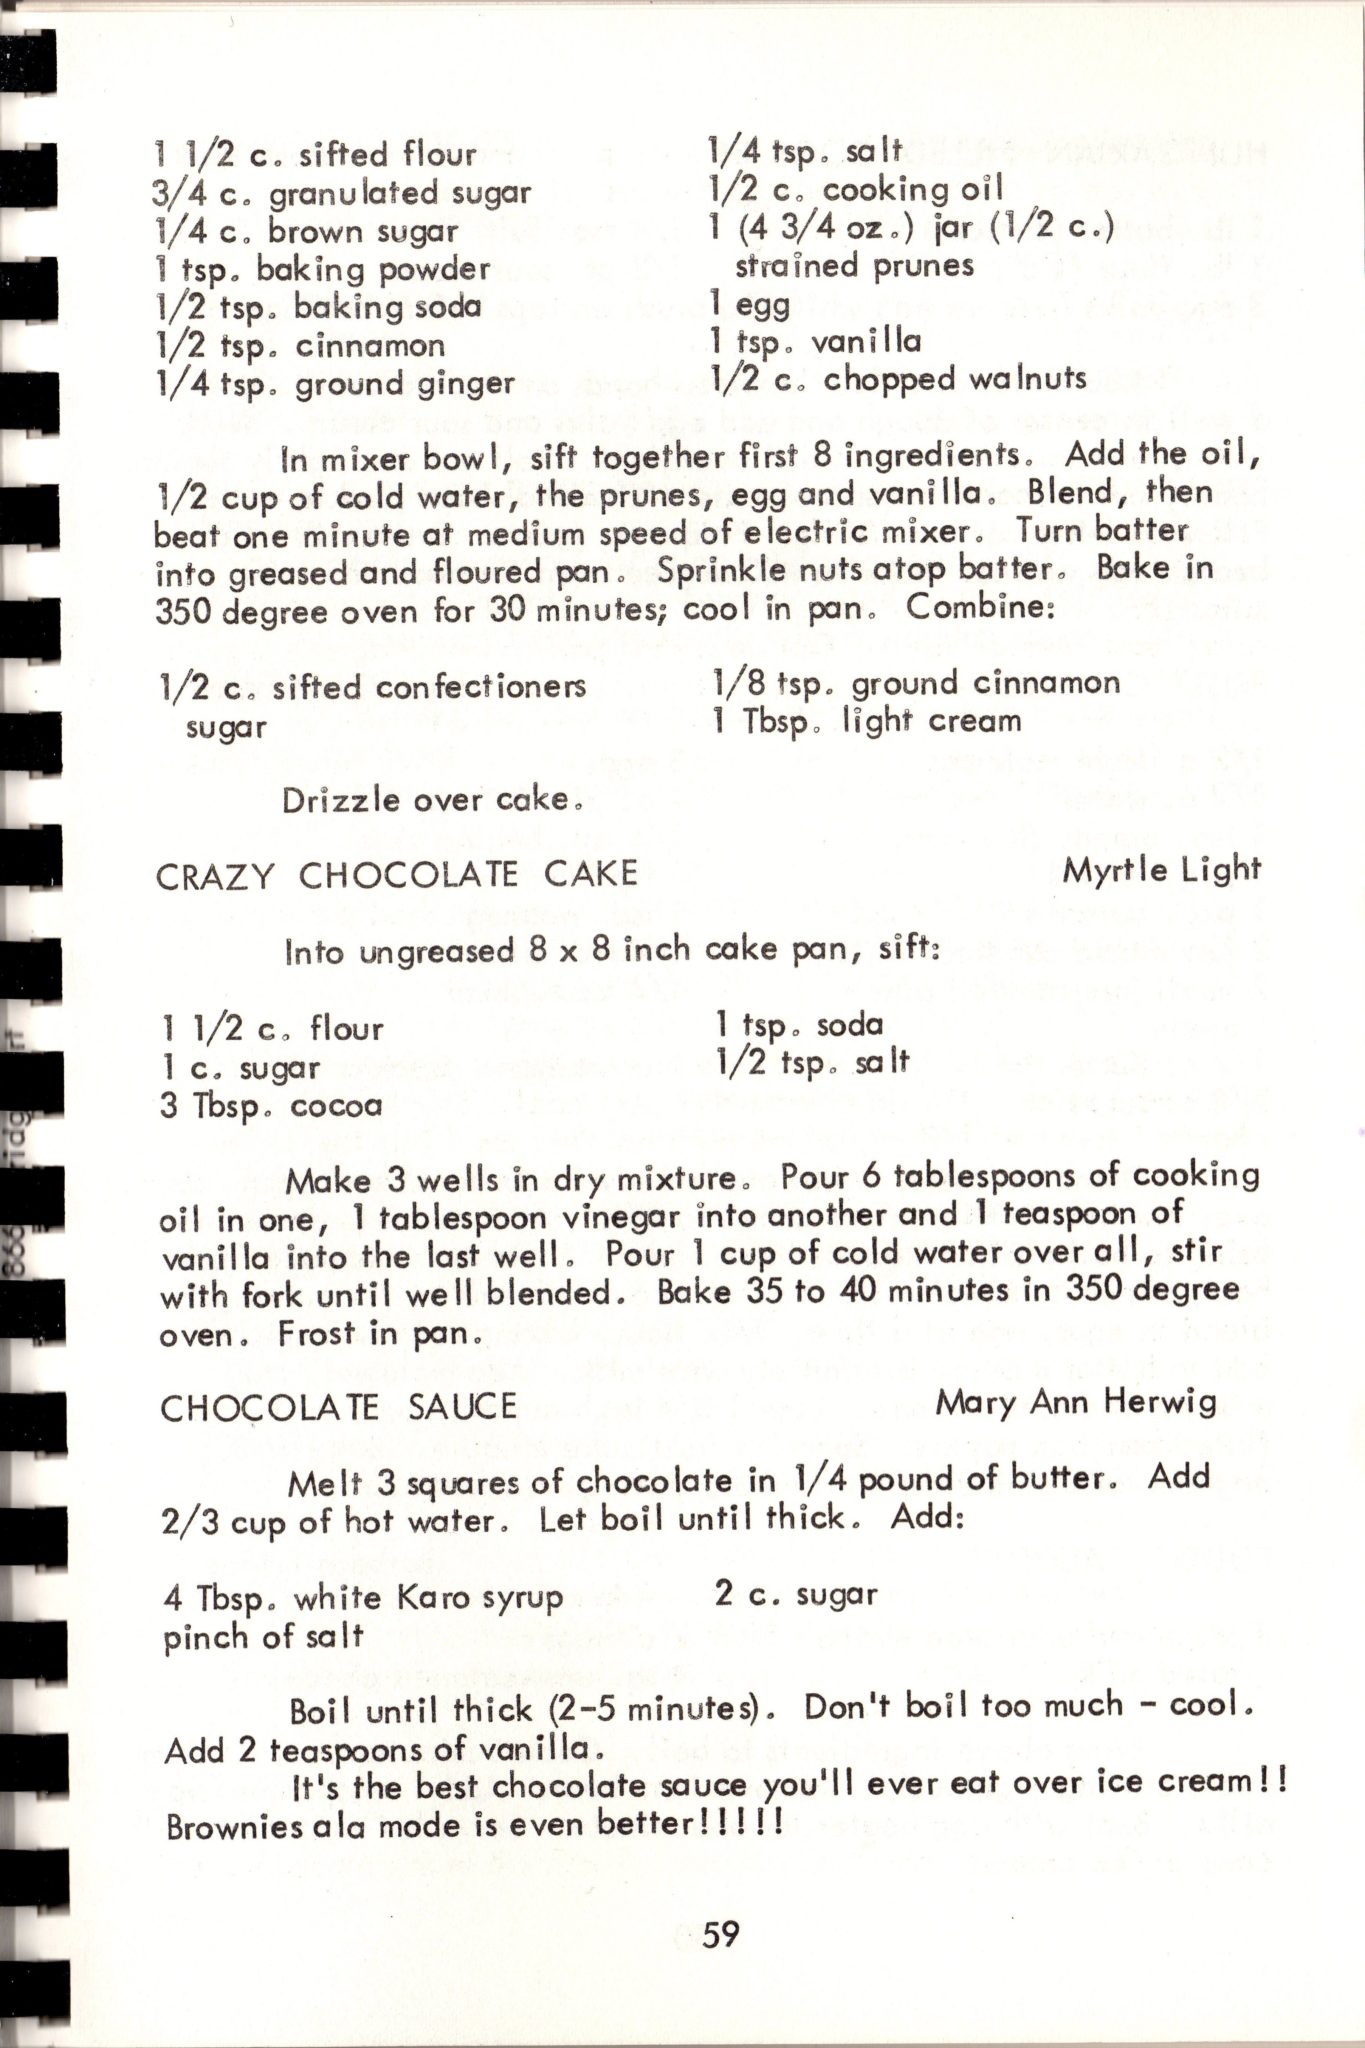 1 1/2 c. sifted flour 1/4 tsp. salt
3/4 c. granulated sugar 1/2 c. cooking oil
1/4 c. brown sugar 1 (4 3/4 oz.) jar (1/2 c.)
1 tsp. baking powder strained prunes
1/2 tsp. baking soda 1 egg
1/2 tsp. cinnamon 1 tsp. vanilla
1/4 tsp. ground ginger 1/2 c. chopped walnuts
In mixer bowl, sift together first 8 ingredients. Add the oil,
1/2 cup of cold water, the prunes, egg and vanilla. Blend, then
beat one minute at medium speed of electric mixer. Turn batter
into greased and floured pan. Sprinkle nuts atop batter. Bake in
350 degree oven for 30 minutes; cool in pan. Combine:
1/2 c. sifted confectioners 1/8 tsp. ground cinnamon
sugar 1 Tbsp. light cream
Drizzle over cake.
CRAZY CHOCOLATE CAKE Myrtle Light
Into ungreased 8 x 8 inch cake pan, sift:
1 1/2 c. flour 1 tsp. soda
1 c. sugar 1/2 tsp. salt
3 Tbsp. cocoa
Make 3 wells in dry mixture. Pour 6 tablespoons of cooking
oil in one, 1 tablespoon vinegar into another and 1 teaspoon of
vanilla into the last well. Pour 1 cup of cold water over all, stir
with fork until well blended. Bake 35 to 40 minutes in 350 degree
oven. Frost in pan.
CHOCOLATE SAUCE Mary Ann Herwig
Melt 3 squares of chocolate in 1/4 pound of butter. Add
2/3 cup of hot water. Let boil until thick. Add:
4 Tbsp. white Karo syrup 2 c. sugar
pinch of salt
Boil until thick (2-5 minutes). Don't boil too much - cool.
Add 2 teaspoons of vanilla.
It's the best chocolate sauce you'll ever eat over ice cream!!
Brownies ala mode is even better!!!!!
59